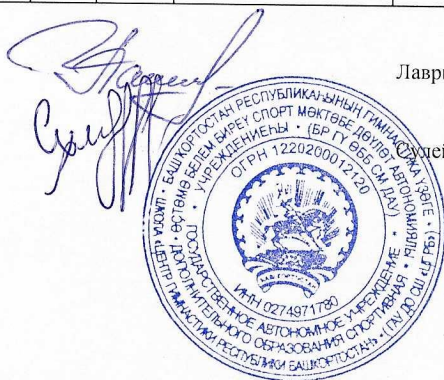 Лаври
Сулей
БАШКОРТОСТАН РЕСПУБЛИКАҺЫНЫҢ ГИМНАСТИКА ҮҘӘГЕ
ӨҪТӘМӘ БЕЛЕМ БИРЕҮ СПОРТ МӘКТӘБЕ ДӘҮЛӘТ АВТОНОМИЯЛЫ
УЧРЕЖДЕНИЕҺЫ • (БР ГҮ ӨББ СМ ДАУ)
ОГРН 1220200012120
ИНН 0274971780
ГОСУДАРСТВЕННОЕ АВТОНОМНОЕ УЧРЕЖДЕНИЕ
ДОПОЛНИТЕЛЬНОГО ОБРАЗОВАНИЯ СПОРТИВНАЯ
ШКОЛА «ЦЕНТР ГИМНАСТИКИ РЕСПУБЛИКИ БАШКОРТОСТАН» • (ГАУ ДО СШ «ЦГРБ»)